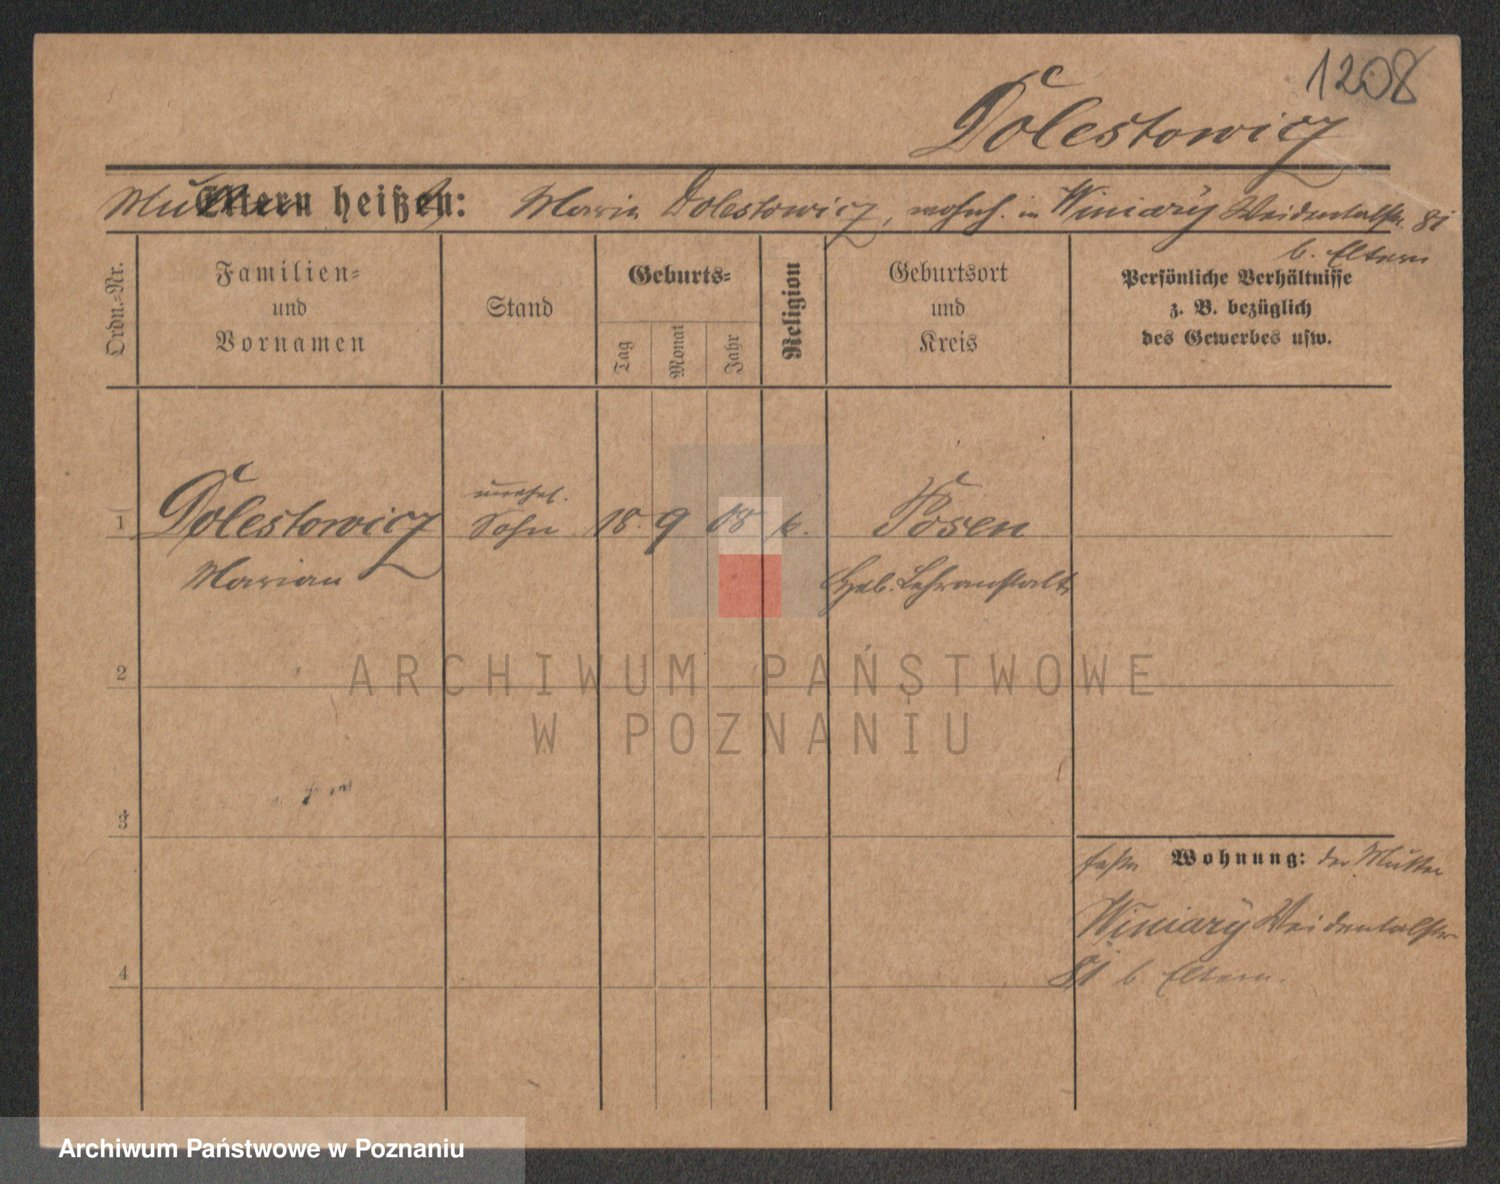 1208
Dolestowicz
Mutter Eltern heißen: Maria Dolestowicz, wohnh. in Winiary Weidentalstr. 81
b. Eltern
Ordn.=Nr.
Familien=
und
Vornamen
Stand
Geburts=
Tag
Monat
Jahr
Religion
Geburtsort
und
Kreis
Persönliche Verhältnisse
z. B. bezüglich
des Gewerbes usw.
unehel.
1 Dolestowicz Sohn 18. 9 08 k. Posen
Marian Heb. Lehranstalt
2
ARCHIWUM PAŃSTWOWE
W POZNANIU
3
Wohnung: der Mutter
Winiary Weidentalstr
81 b. Eltern.
4
Archiwum Państwowe w Poznaniu